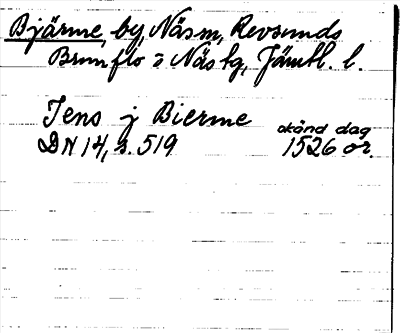 Bjärme, by, Näs sn, Revsunds
Brunflo o Näs tg, Jämtl. l.
Jens j Bierme
okänd dag
DN 14, s. 519 1526 or.